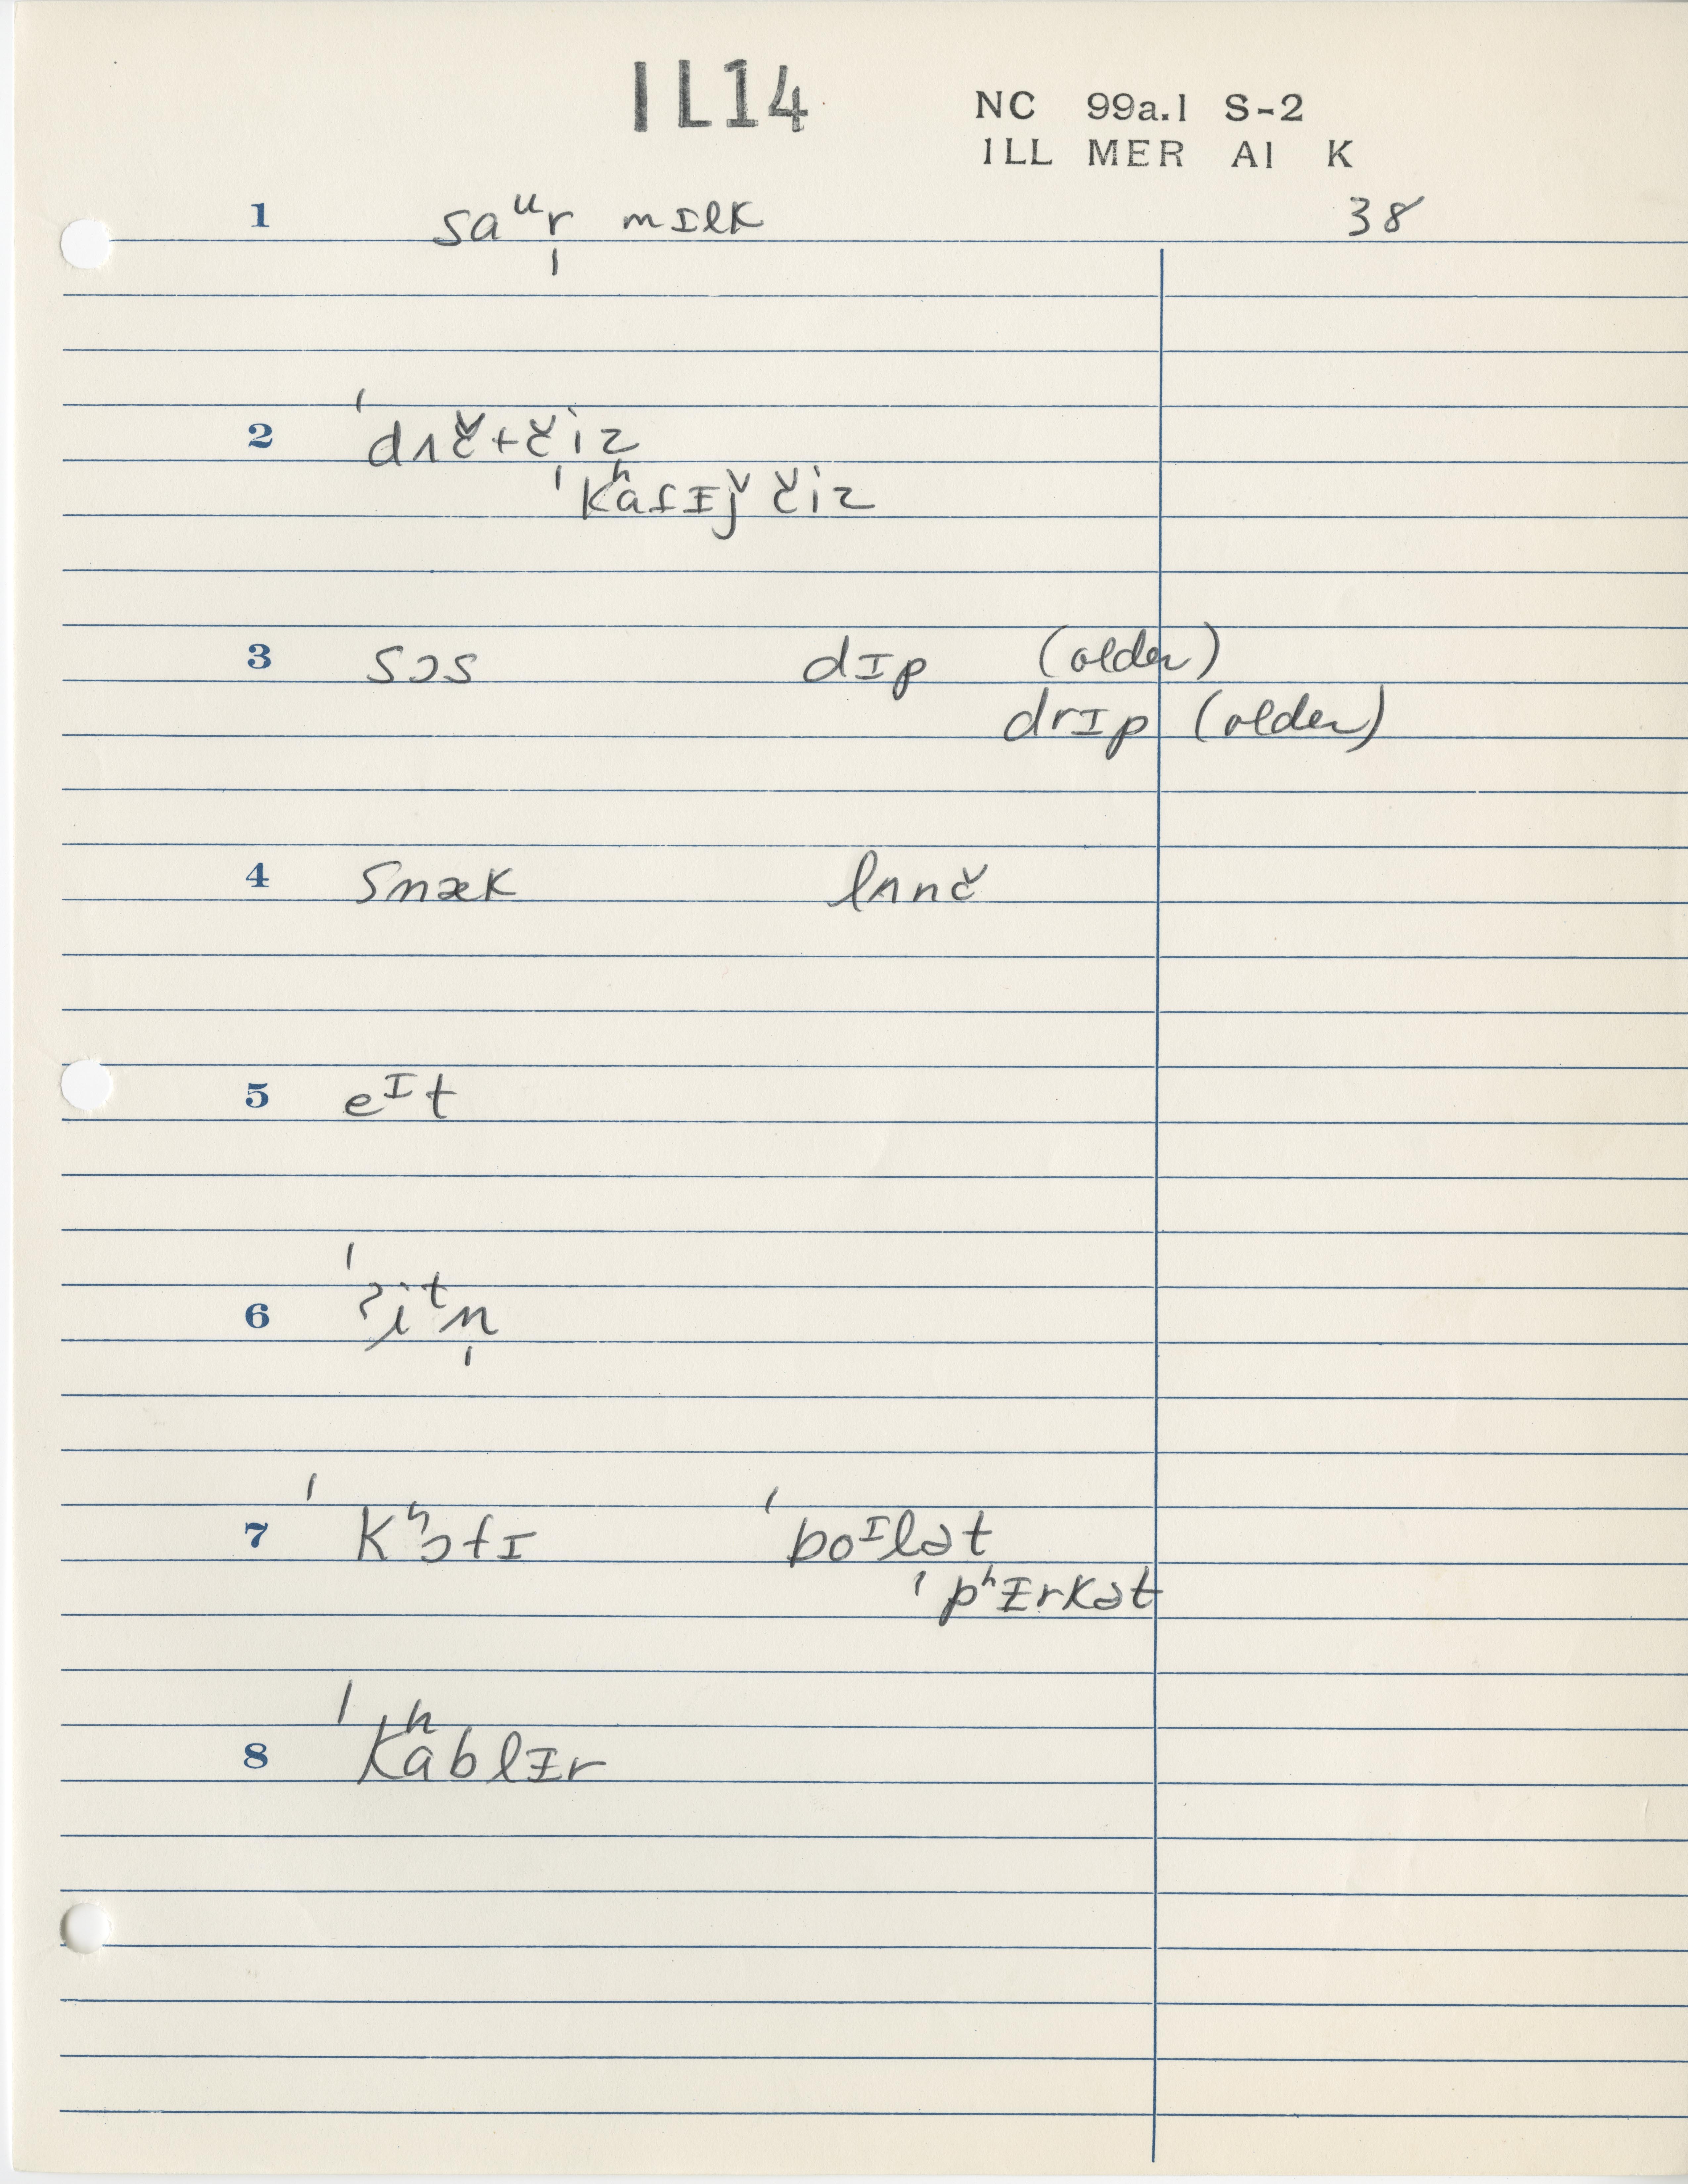 IL14
NC 99a.1 S-2
ILL MER A1 K
1 saᵘr̩ mɪlk 38
2 ˈdʌč+čiz
ˈkʰafɪǰ čiz
3 sɔs dɪp (older)
drɪp (older)
4 snæk lʌnč
5 eᴵt
6 ˈʔiᵗn̩
7 ˈkʰɔfɪ ˈboᴵlət
ˈpʰᵻrkət
8 ˈkʰablᵻr